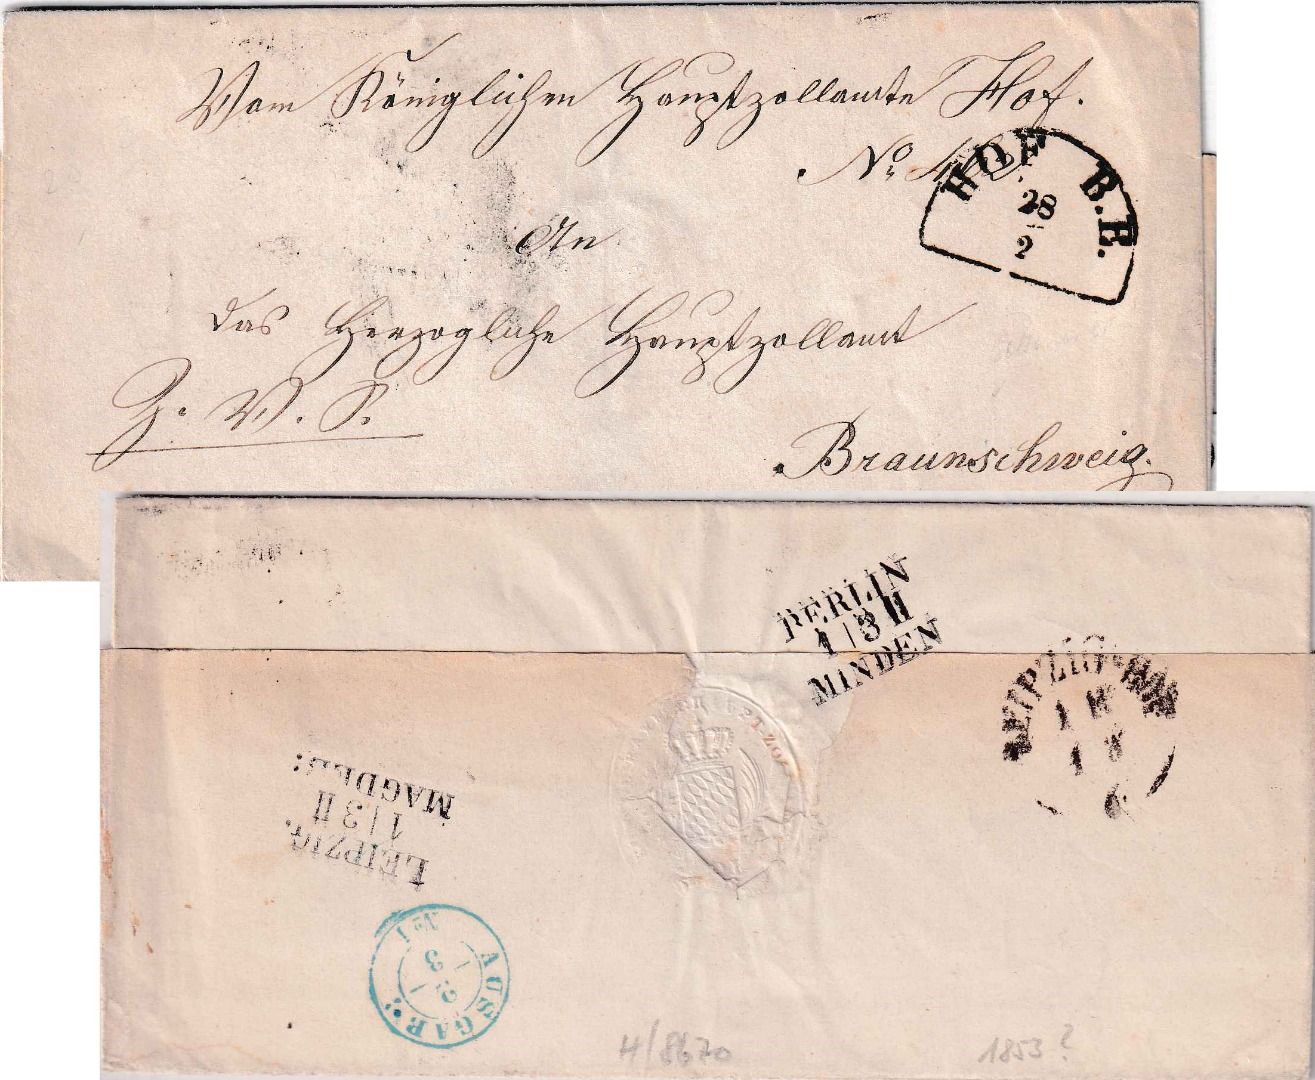 Vom Königlichen Hauptzollamte Hof.
No.
HOF B.E.
28
2
An
das Herzogliche Hauptzollamt
Z. V. S.
Braunschweig.
BERLIN
1|3 II
MINDEN
LEIPZIG
1
LEIPZIG.
1|3 II
MAGDEB:
AUSGABE
No 1
2
3
H/8670
1853?